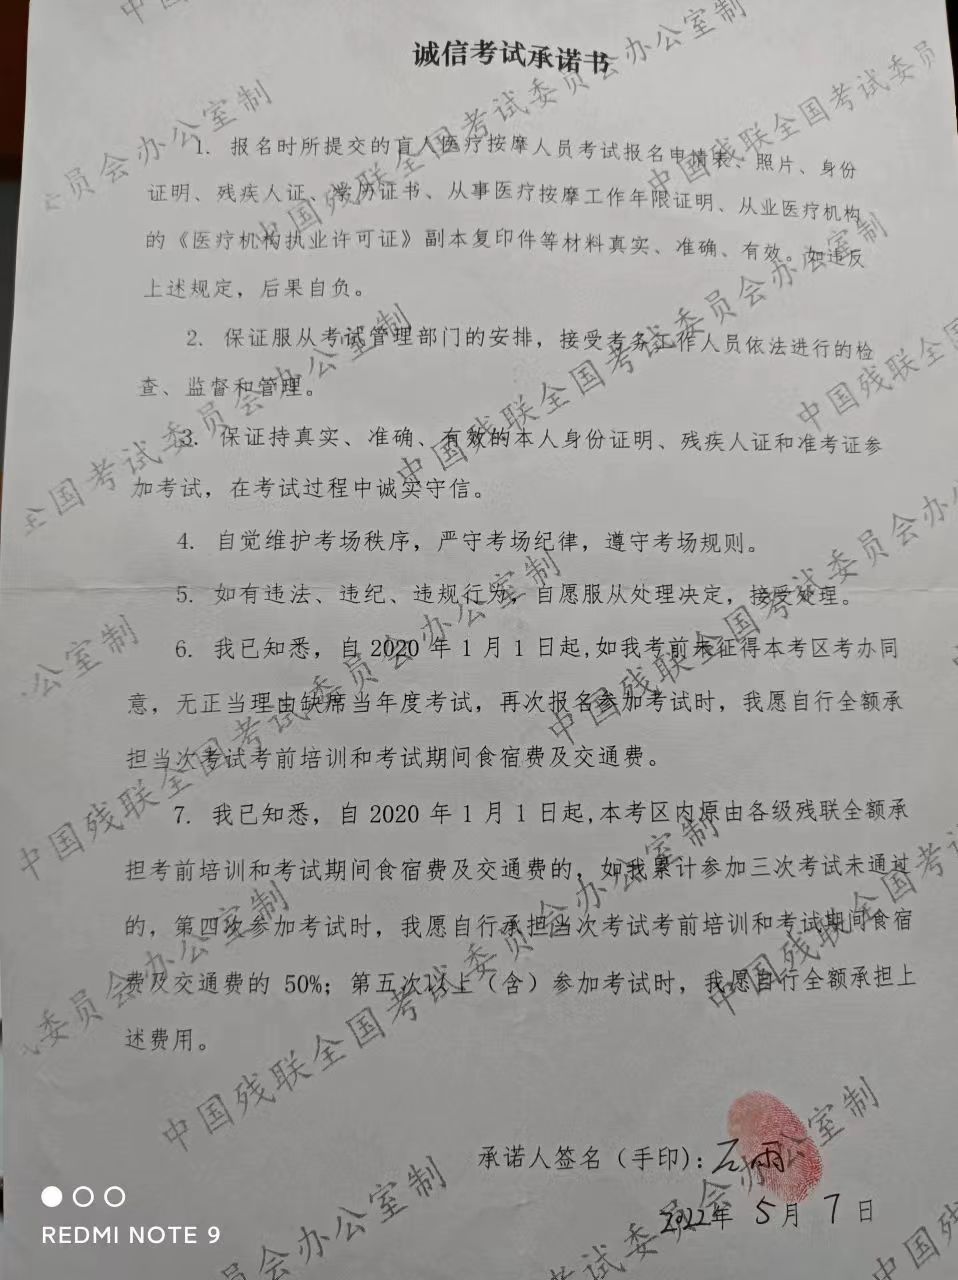 诚信考试承诺书
1. 报名时所提交的盲人医疗按摩人员考试报名申请表、照片、身份
证明、残疾人证、学历证书、从事医疗按摩工作年限证明、从业医疗机构
的《医疗机构执业许可证》副本复印件等材料真实、准确、有效。如违反
上述规定，后果自负。
2. 保证服从考试管理部门的安排，接受考务工作人员依法进行的检
查、监督和管理。
3. 保证持真实、准确、有效的本人身份证明、残疾人证和准考证参
加考试，在考试过程中诚实守信。
4. 自觉维护考场秩序，严守考场纪律，遵守考场规则。
5. 如有违法、违纪、违规行为，自愿服从处理决定，接受处理。
6. 我已知悉，自 2020 年 1 月 1 日起,如我考前未征得本考区考办同
意，无正当理由缺席当年度考试，再次报名参加考试时，我愿自行全额承
担当次考试考前培训和考试期间食宿费及交通费。
7. 我已知悉，自 2020 年 1 月 1 日起,本考区内原由各级残联全额承
担考前培训和考试期间食宿费及交通费的，如我累计参加三次考试未通过
的，第四次参加考试时，我愿自行承担当次考试考前培训和考试期间食宿
费及交通费的 50%；第五次以上（含）参加考试时，我愿自行全额承担上
述费用。
承诺人签名（手印）：石雨
2022年 5月 7日
中国残联全国考试委员会办公室制
REDMI NOTE 9